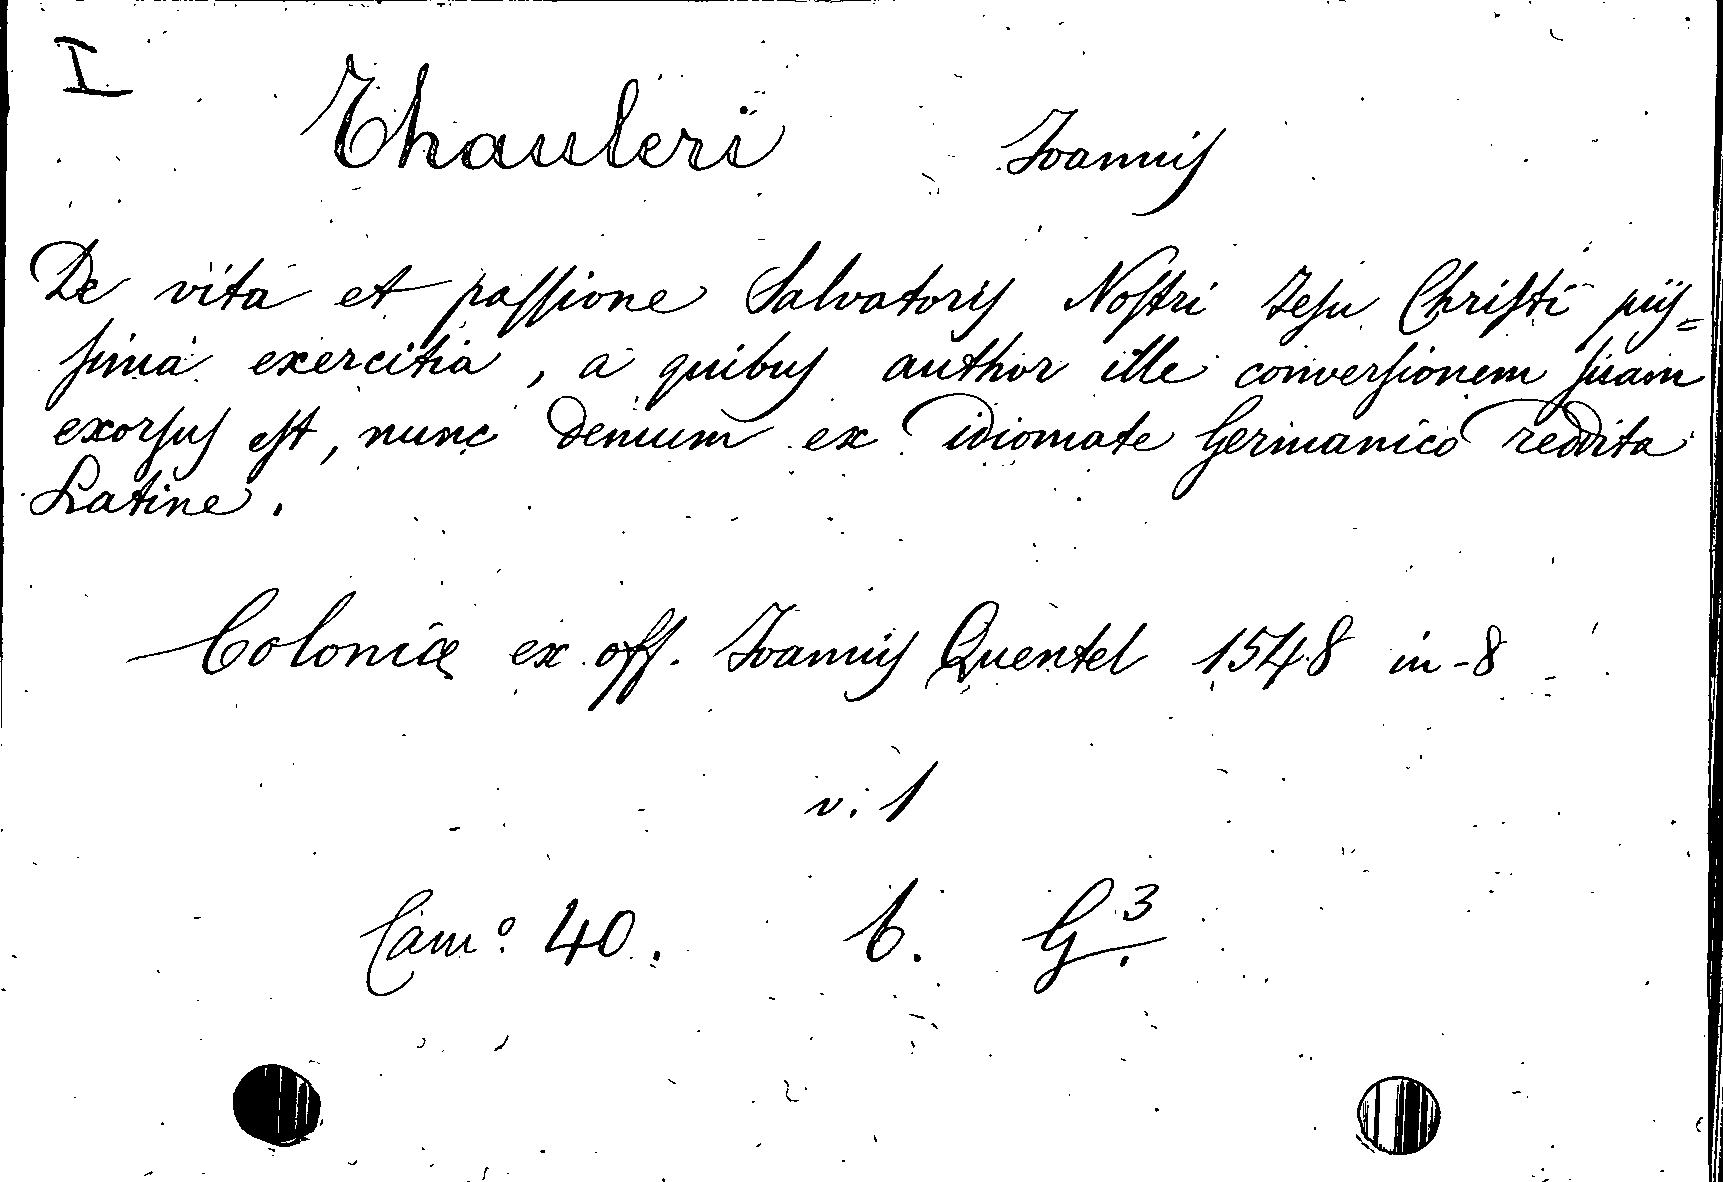 I
Thauleri Ioannis
De vita et passione Salvatoris Nostri Iesu Christi piis=
sima exercitia, a quibus author ille conversionem suam
exorsus est, nunc demum ex idiomate Germanico reddita
Latine.
Coloniæ ex off. Ioannis Quentel 1548 in-8
v. 1
Cam.º 40. b. G.³